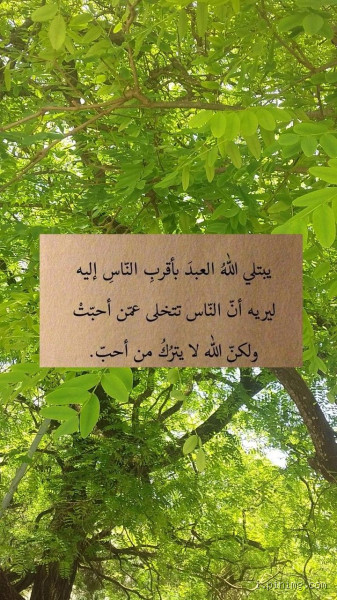 يبتلي اللّٰهُ العبدَ بأقربِ النّاسِ إليه
ليريه أنّ النّاس تتخلى عمّن أحبّتْ
ولكنّ اللّٰه لا يترُكُ من أحبّ.